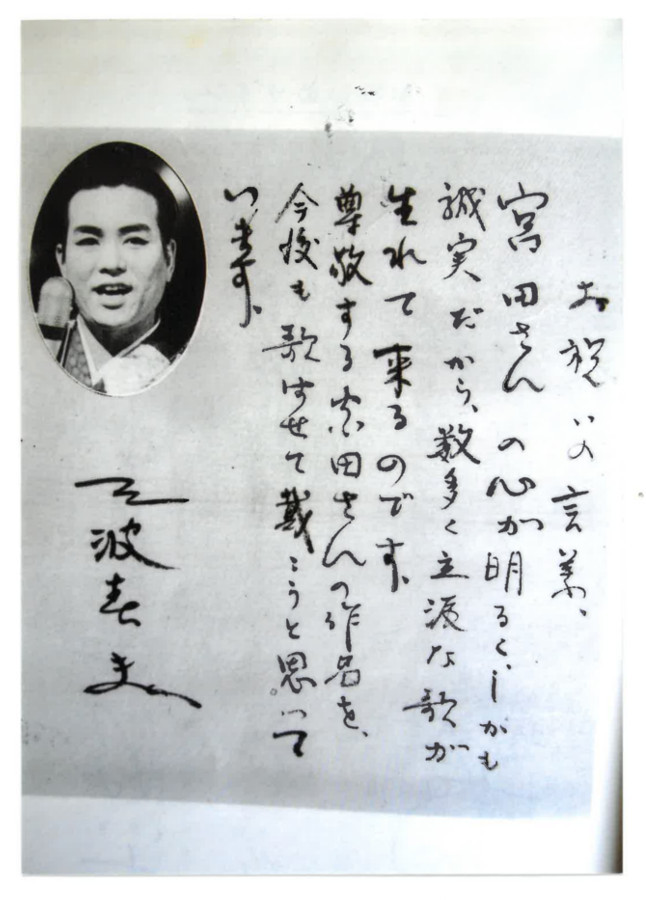 お祝いの言葉、
宮田さんの心が明るく、しかも
誠実だから、数多く立派な歌が
生れて来るのです、
尊敬する宮田さんの作品を、
今後も歌はせて戴こうと思って
います、
三波春夫